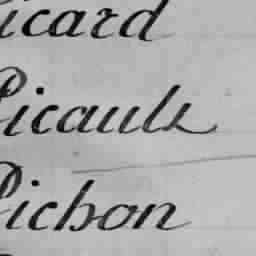 Picard
Picault
Pichon